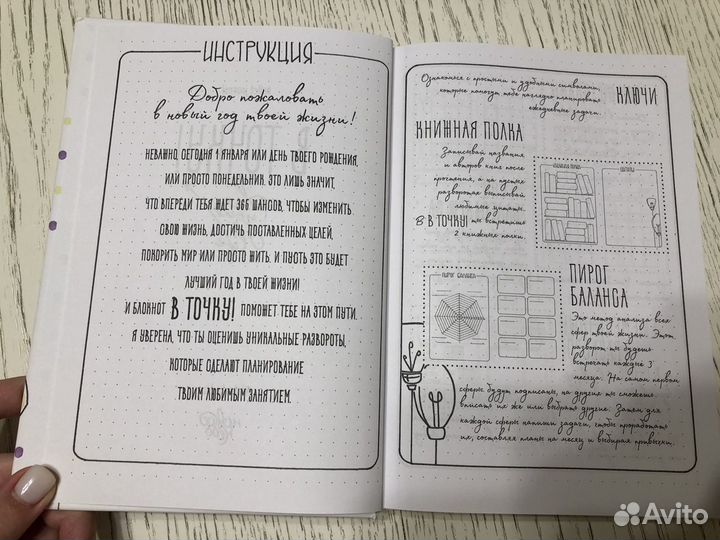 ИНСТРУКЦИЯ
Добро пожаловать
в новый год твоей жизни!
НЕВАЖНО, СЕГОДНЯ 1 ЯНВАРЯ ИЛИ ДЕНЬ ТВОЕГО РОЖДЕНИЯ,
ИЛИ ПРОСТО ПОНЕДЕЛЬНИК. ЭТО ЛИШЬ ЗНАЧИТ,
ЧТО ВПЕРЕДИ ТЕБЯ ЖДЕТ 365 ШАНСОВ, ЧТОБЫ ИЗМЕНИТЬ
СВОЮ ЖИЗНЬ, ДОСТИЧЬ ПОСТАВЛЕННЫХ ЦЕЛЕЙ,
ПОКОРИТЬ МИР ИЛИ ПРОСТО ЖИТЬ. И ПУСТЬ ЭТО БУДЕТ
ЛУЧШИЙ ГОД В ТВОЕЙ ЖИЗНИ!
И БЛОКНОТ В ТОЧКУ! ПОМОЖЕТ ТЕБЕ НА ЭТОМ ПУТИ.
Я УВЕРЕНА, ЧТО ТЫ ОЦЕНИШЬ УНИКАЛЬНЫЕ РАЗВОРОТЫ,
КОТОРЫЕ СДЕЛАЮТ ПЛАНИРОВАНИЕ
ТВОИМ ЛЮБИМЫМ ЗАНЯТИЕМ.
Ознакомься с простыми и удобными символами,
которые помогут тебе наглядно планировать
ежедневные задачи.
КЛЮЧИ
КНИЖНАЯ ПОЛКА
Записывай названия
и авторов книг после
прочтения, а на пустых
разворотах выписывай
любимые цитаты.
В В ТОЧКУ! ты встретишь
2 книжных полки.
КНИЖНАЯ ПОЛКА
ЦИТАТЫ
ПИРОГ БАЛАНСА
ПИРОГ
БАЛАНСА
Это метод анализа всех
сфер твоей жизни. Этот
разворот ты будешь
встречать каждые 3
месяца. На самом первом
сферы будут подписаны, на другие ты сможешь
вписать их же или выбрать другие. Затем для
каждой сферы напиши задачи, чтобы проработать
их, составляя планы на месяц и выбирая привычки.
Avito